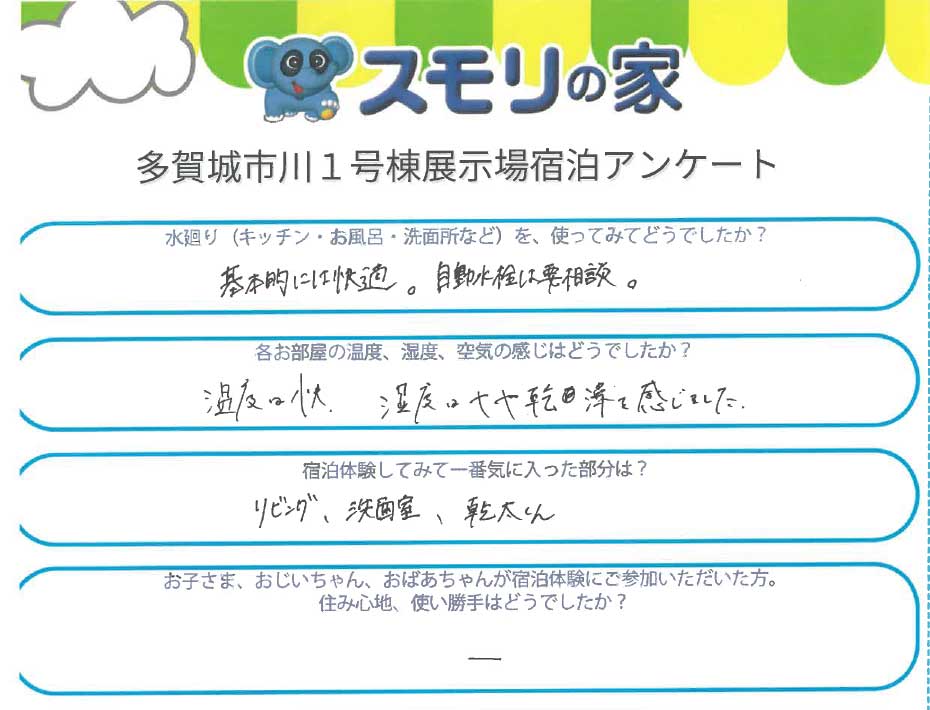 スモリの家
多賀城市川1号棟展示場宿泊アンケート
水廻り（キッチン・お風呂・洗面所など）を、使ってみてどうでしたか？
基本的には快適。自動水栓は要相談。
各お部屋の温度、湿度、空気の感じはどうでしたか？
温度は快 湿度はやや乾 を感じました.
宿泊体験してみて一番気に入った部分は？
リビング、洗面室、乾太くん
お子さま、おじいちゃん、おばあちゃんが宿泊体験にご参加いただいた方。
住み心地、使い勝手はどうでしたか？
—